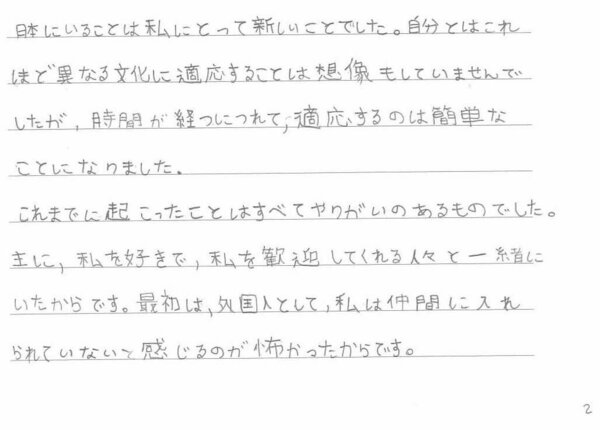 日本にいることは私にとって新しいことでした。自分とはこれ
ほど異なる文化に適応することは想像もしていませんで
したが，時間が経つにつれて，適応するのは簡単な
ことになりました．
これまでに起こったことはすべてやりがいのあるものでした。
主に，私を好きで，私を歓迎してくれる人々と一緒に
いたからです。最初は，外国人として，私は仲間に入れ
られていないと感じるのが怖かったからです。
2